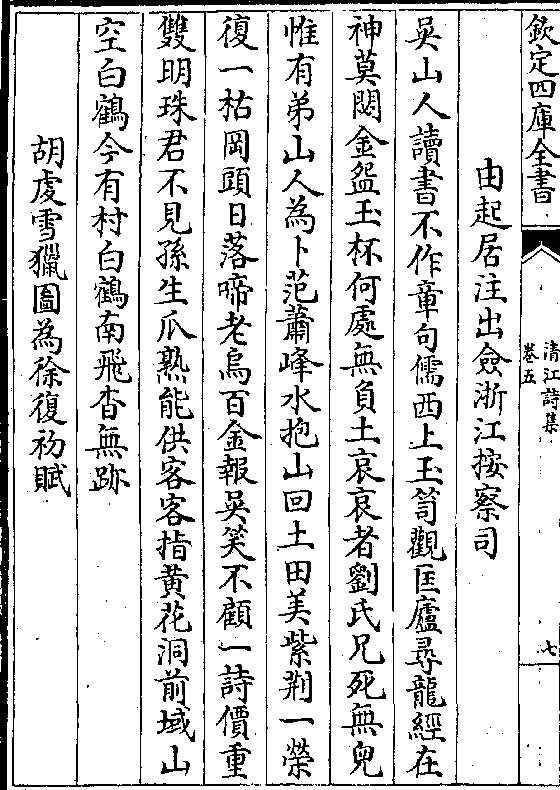 欽定四庫全書
清江詩集
卷五
七
由起居注出僉浙江按察司
吳山人讀書不作章句儒西上玉笥觀匡廬尋龍經在
神莫閟金盌玉杯何處無負土哀哀者劉氏兄死無兒
惟有弟山人為卜范蕭峰水抱山回土田美紫荆一榮
復一枯岡頭日落啼老烏百金報吳笑不顧一詩價重
雙明珠君不見孫生瓜熟能供客客指黄花洞前域山
空白鶴今有村白鶴南飛杳無跡
胡虔雪獵圖為徐復初賦